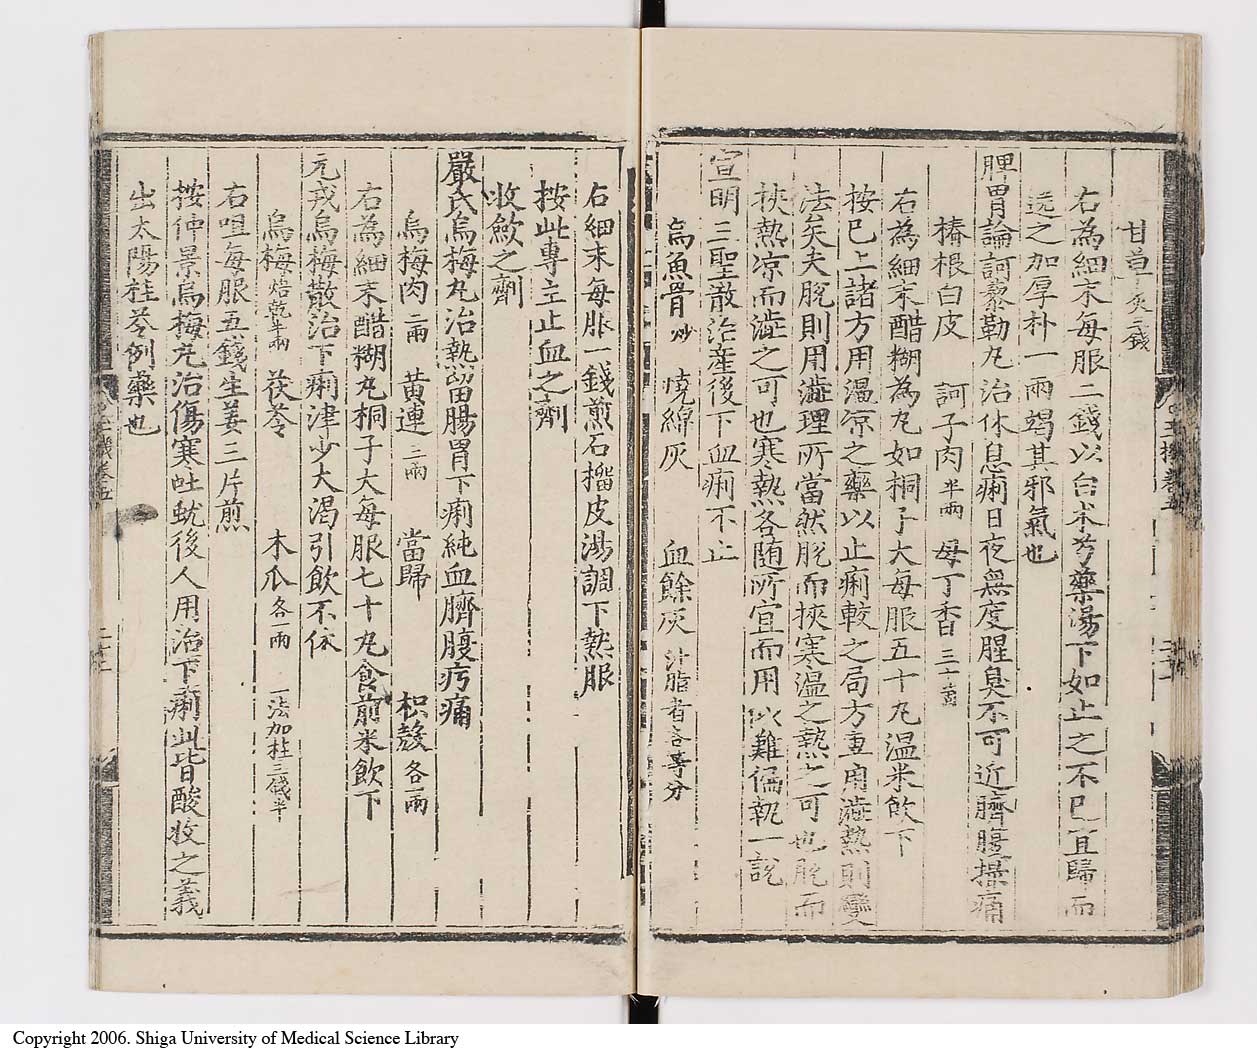 甘草炙二錢
右為細末每服二錢以白朮芍藥湯下如止之不已宜歸而
送之加厚朴一兩竭其邪氣也
脾胃論訶藜勒丸治休息痢日夜無度腥臭不可近臍腹撮痛
椿根白皮 訶子肉半兩 母丁香三十箇
右為細末醋糊為丸如桐子大每服五十丸温米飲下
按已上諸方用温凉之藥以止痢較之局方重用澁熱則變
法矣夫脫則用澁理所當然脫而挾寒温之熱之可也脫而
挾熱凉而澁之可也寒熱各随所宜而用以難徧執一說
宣明三聖散治産後下血痢不止
烏魚骨炒 燒綿灰 血餘灰汁脂者各等分
右細末每服一錢煎石榴皮湯調下熱服
按此專立止血之劑
收歛之劑
嚴氏烏梅丸治熱留腸胃下痢純血臍腹疞痛
烏梅肉二兩 黃連三兩 當歸 枳殼各一兩
右為細末醋糊丸桐子大每服七十丸食前米飲下
元戎烏梅散治下痢津少大渴引飲不依
烏梅焙乾半兩 茯苓 木瓜各一兩 一法加桂三錢半
右咀每服五錢生姜三片煎
按仲景烏梅丸治傷寒吐蚘後人用治下痢此皆酸收之義
出太陽桂苓例藥也